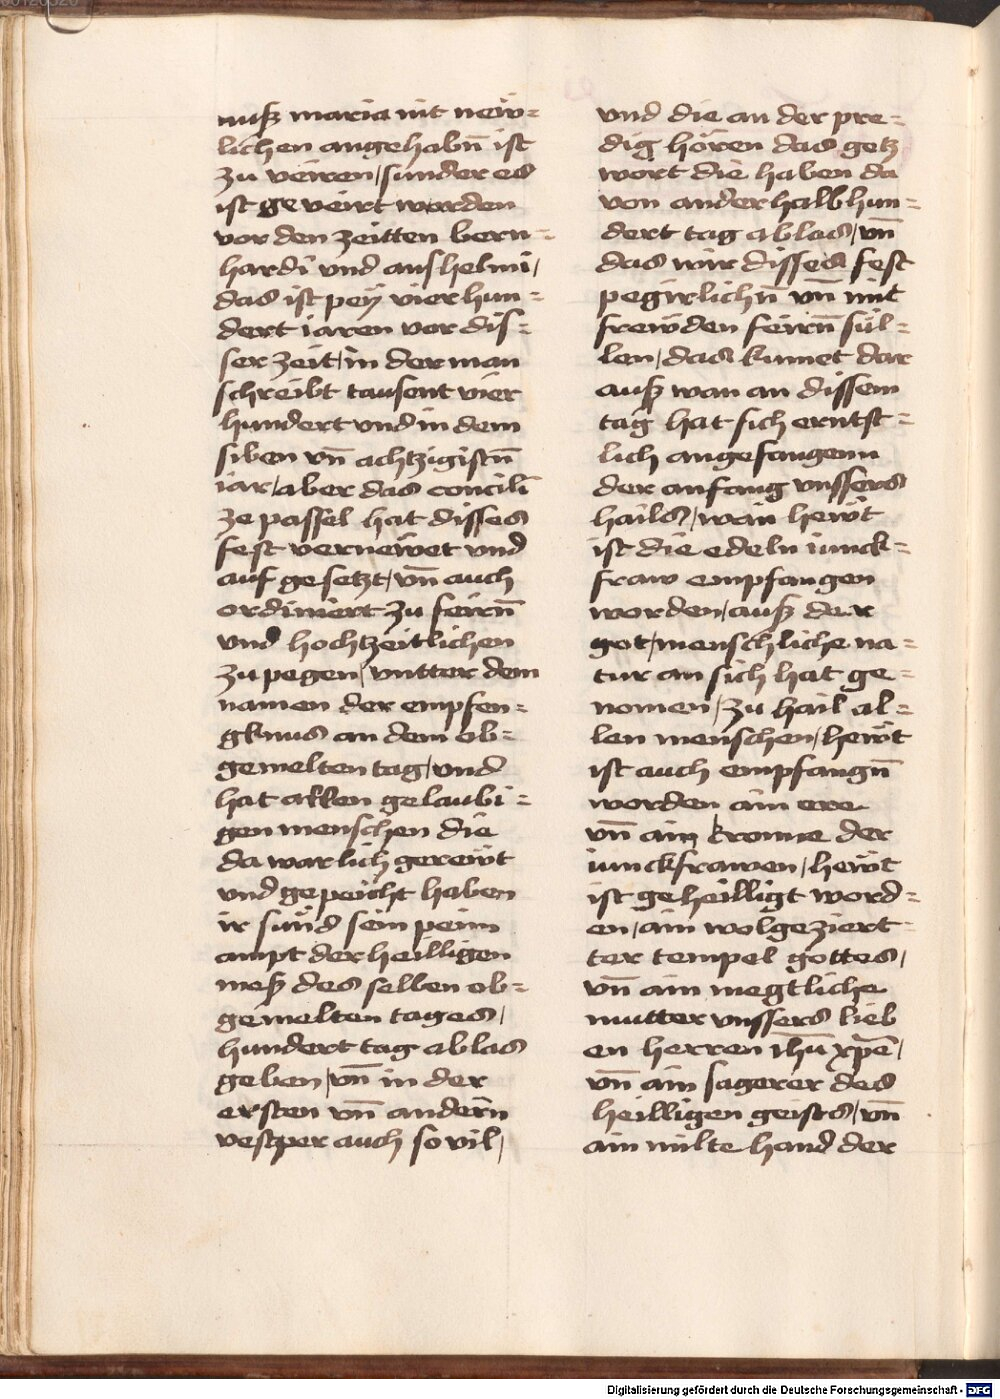 nuß maria nit new=
lichen angehabn̄ ist
zu veiren / sunder es
ist geveirt worden
vor den zeitten bern=
hardi vnd anshelmi /
das ist pey vierhun=
dert iaren vor dis=
ser zeit / in der man
schreibt tausent vier
hundert vnd in dem
siben vn̄ achtzigistn̄
iar / aber das concili
ze passel hat disses
fest vernewet vnd
auf gesetzt / vn̄ auch
ordiniert zu feirn̄
vnd hochtzeitlichen
zu pegen / vntter dem
namen der empfen=
gknus an dem ob=
gemelten tag / vnd
hat allen gelaubi=
gen menschen die
da warlich gerewt
vnd gepeicht haben
ir sund sein peim
ampt der heilligen
meß des selben ob=
gemelten tages /
hundert tag ablas
geben / vn̄ in der
ersten vn̄ andern
vesper auch so vil /
vnd die an der pre=
dig hören das gotz
wort die haben da
von anderhalb hun=
dert tag ablas / vn̄
das wir disses fest
pegirlichn̄ vn̄ mit
frewden feirn̄ sül=
len / das kumet dar
auß wan an dissem
tag hat sich erntst=
lich angefangenn
der anfang vnssers
hails / wan hewt
ist die edeln iunck=
fraw empfangen
worden / auß der
got / menschliche na=
tur an sich hat ge=
nomen / zu hail al=
len menschen / hewt
ist auch empfangn̄
worden ain ere
vn̄ ain kronne der
iunckfrawen / hewt
ist geheilligt word=
en / ain wolgeziert=
ter tempel gottes /
vn̄ ain megtliche
mutter vnssers lieb
en herren ihū xpē /
vn̄ ain sagerer des
heilligen geists / vn̄
ain milte hand der
Digitalisierung gefördert durch die Deutsche Forschungsgemeinschaft - DFG